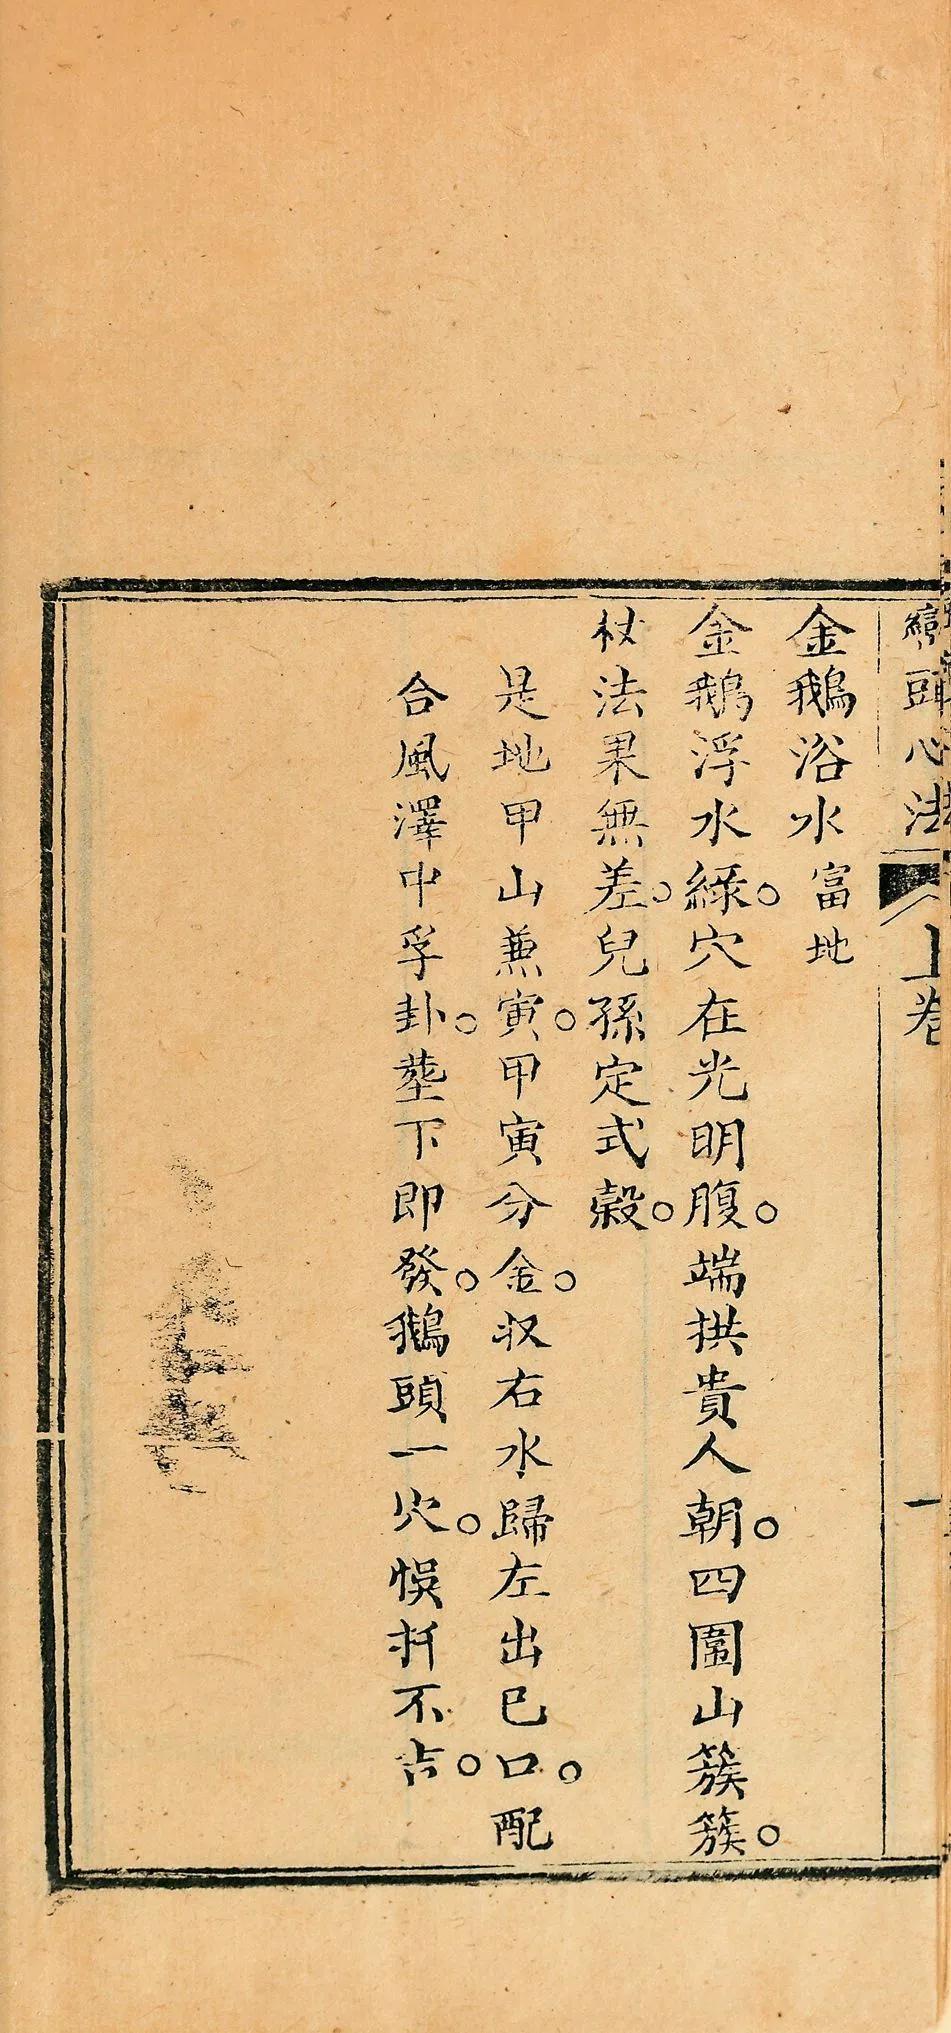 巒頭心法 上卷 一
金鵝浴水 富地
金鵝浮水綠。穴在光明腹。端拱貴人朝。四圍山簇簇。
杖法果無差。兒孫定式穀。
是地甲山兼寅。甲寅分金。収右水歸左出巳口。配
合風澤中孚卦。塟下即發。鵝頭一穴。悞扦不吉。